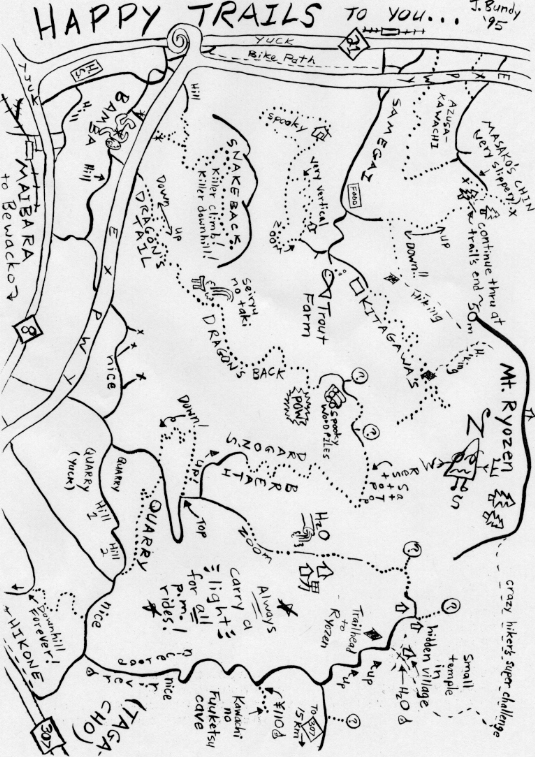 HAPPY TRAILS TO YOU...
J. Bundy
'95
YUCK
21
Bike Path
YUCK
H.S.
EXPWY
BAMBA
Hill
Hill
MAIBARA
to Bewacko
8
EXPWY
SAMEGAI
Food
AZUSA-
KAWACHI
MASAKO'S CHIN
very slippery!
continue thru at
trail's end ~50m
Mt. Ryozen
UP
DOWN!!
Hiking
KITAGAWA'S
Trout
Farm
spooky
very vertical
ZOOM
SNAKEBACK
Killer climb!
Killer downhill!
Down
UP
DRAGON'S
TAIL
seiryu
no taki
DRAGON'S BACK
POW!
spooky
woodpiles
?
?
nice
DOWN!
UP!
DRAGON'S
BREATH
Rest
Stop
N
S
W
QUARRY
(YUCK)
QUARRY
Hill
1
Hill
2
QUARRY
TOP
ZOOM
H2O
?
?
?
crazy hiker's super challenge
Small
temple
in
hidden village
H2O
Trailhead
to
Ryozen
UP
UP
Always
carry a
light
for all
p.m.
rides!
nice
Downhill
Forever!
HIKONE
(TAGA-
CHO)
30
nice
river
road
Kawachi
no
Fuuketsu
cave
¥110
TO
15 km